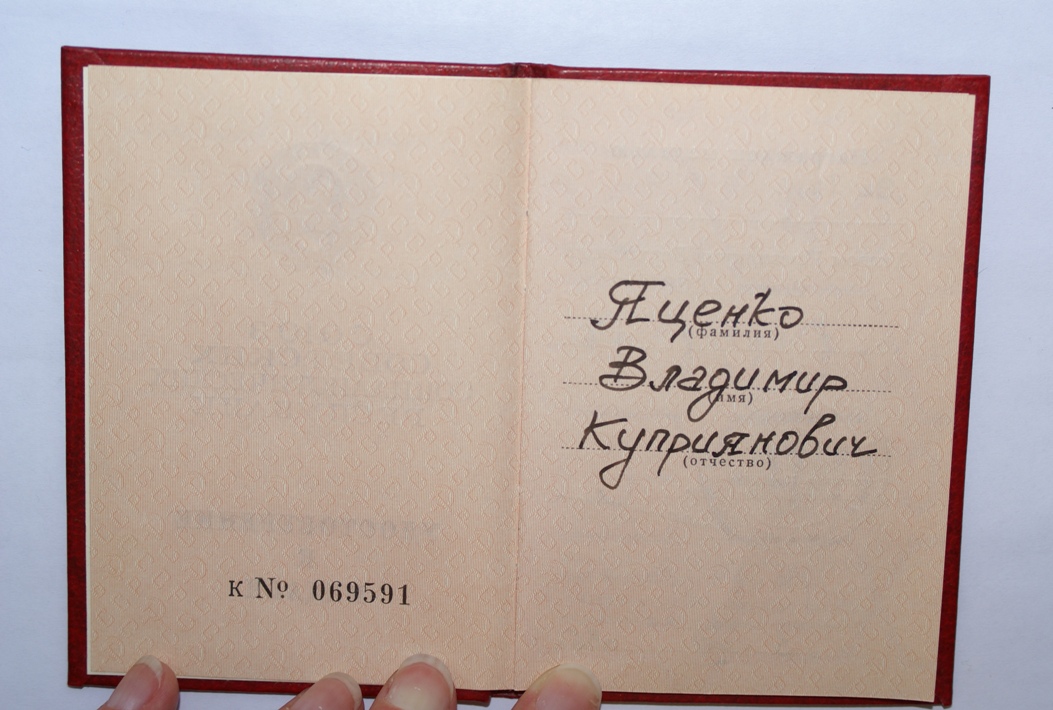 к № 069591
Яценко
(фамилия)
Владимир
(имя)
Куприянович
(отчество)